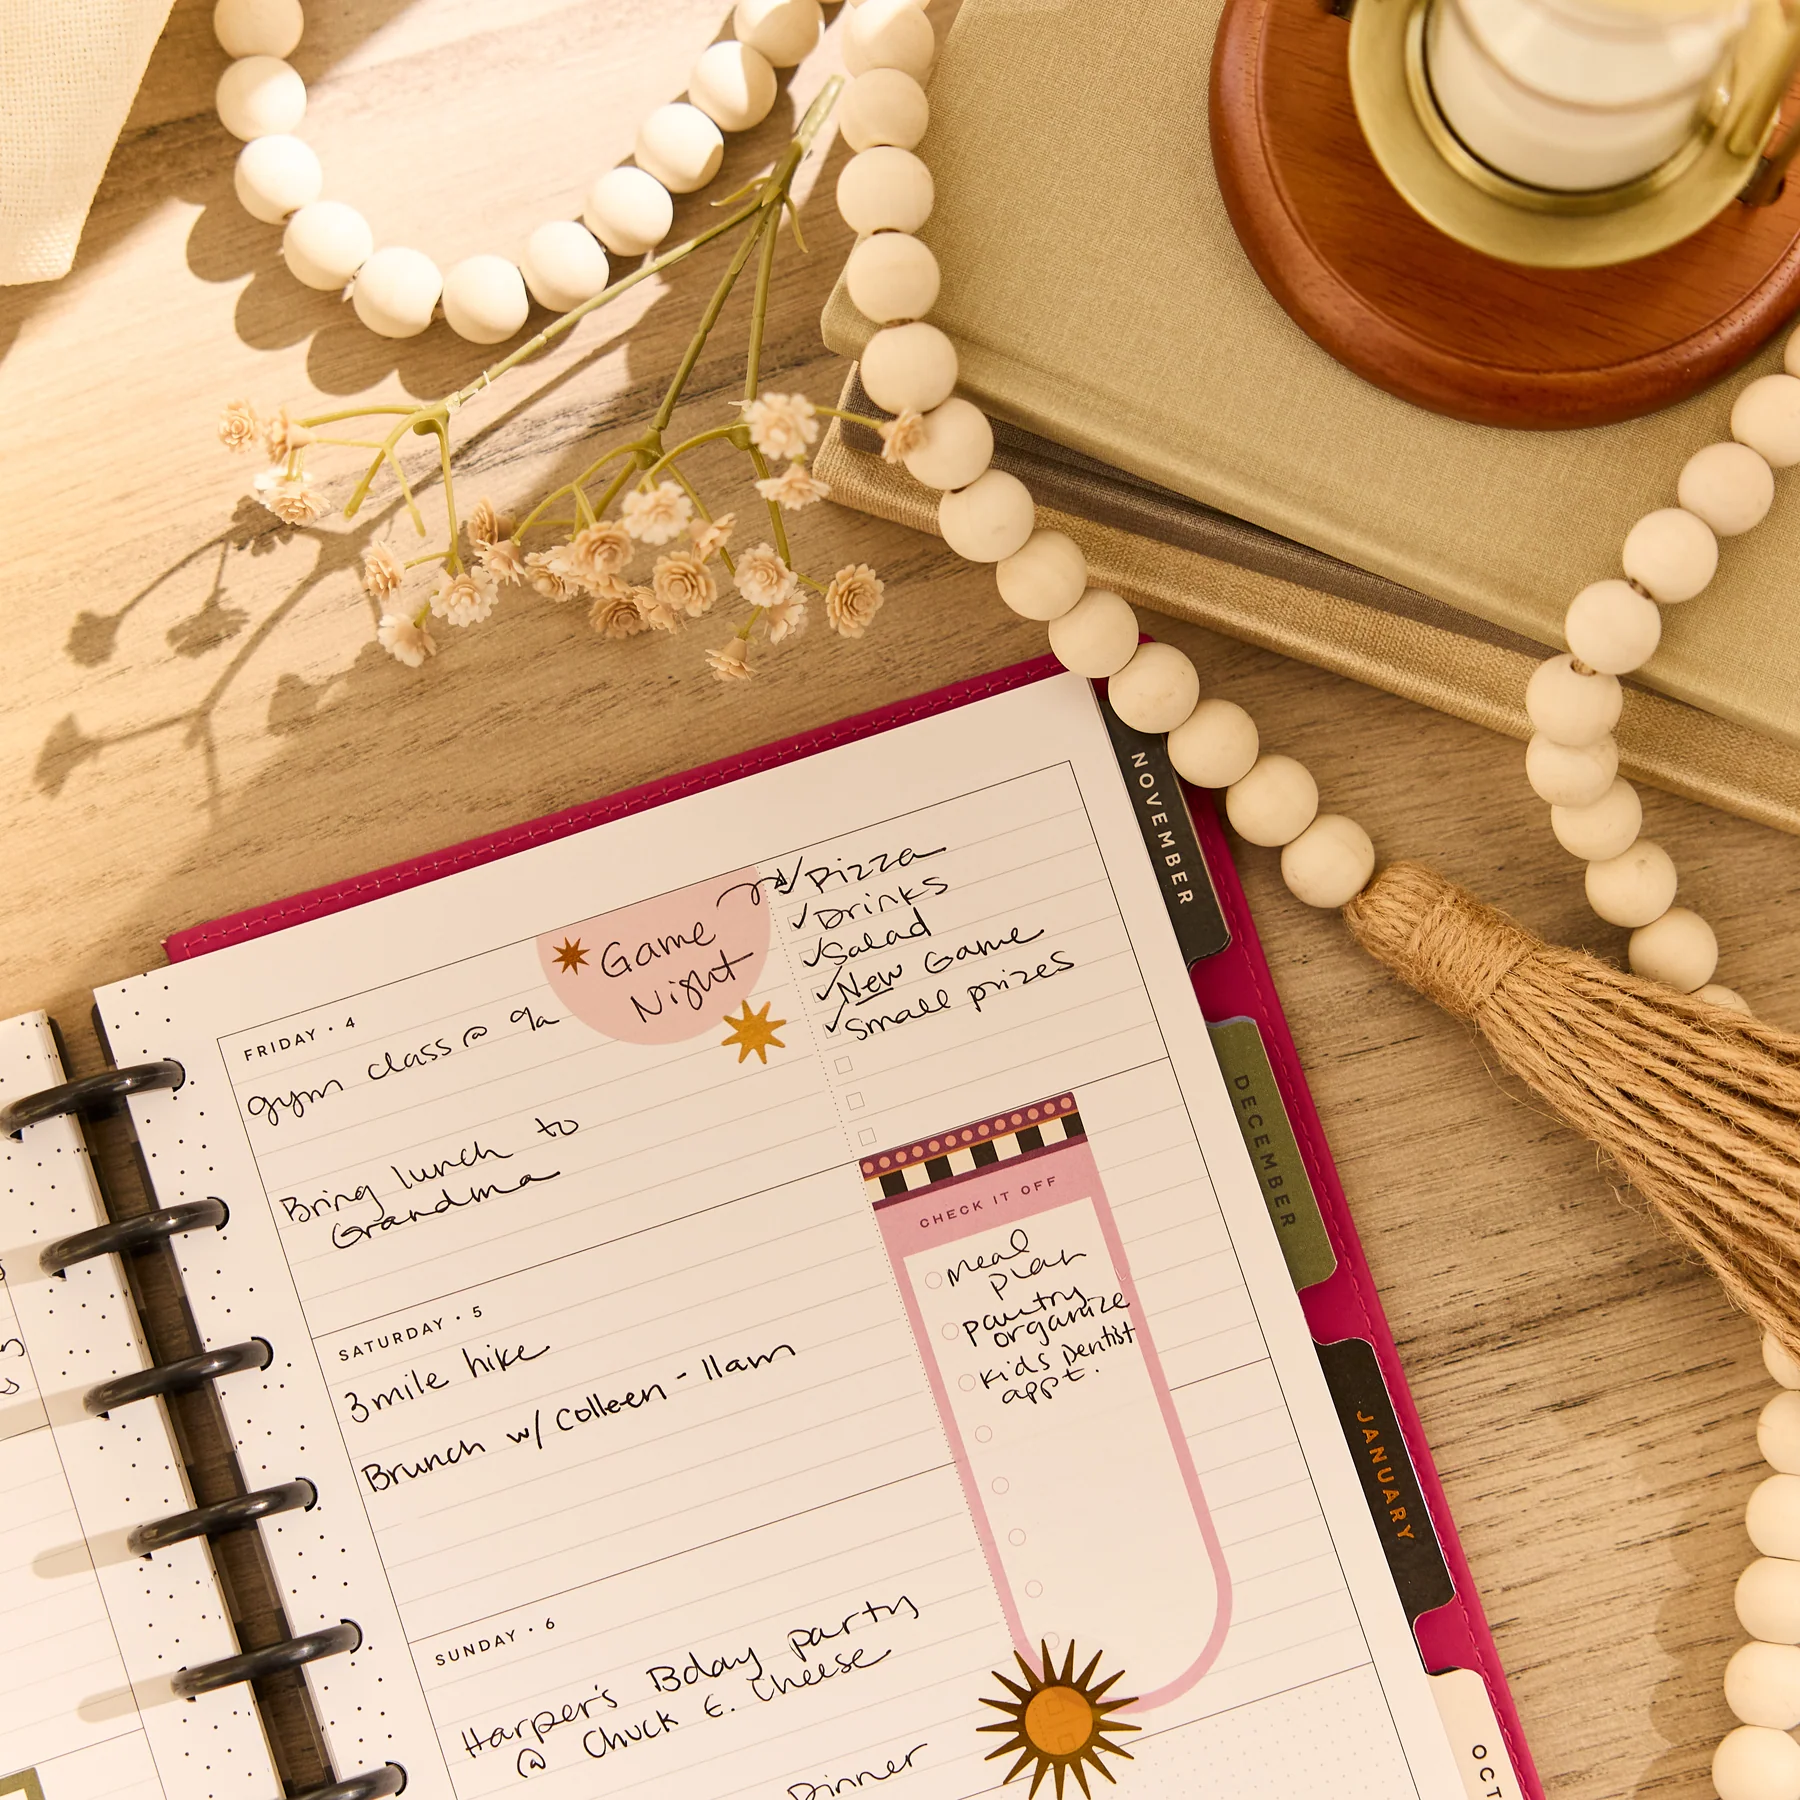 NOVEMBER
DECEMBER
JANUARY
OCT
FRIDAY · 4
gym class @ 9a
Bring lunch to
Grandma
Game
Night
Pizza
Drinks
Salad
New Game
Small prizes
CHECK IT OFF
meal
plan
pantry
organize
kids Dentist
appt.
SATURDAY · 5
3 mile hike
Brunch w/ Colleen - 11am
SUNDAY · 6
Harper's Bday party
@ Chuck E. Cheese
Dinner